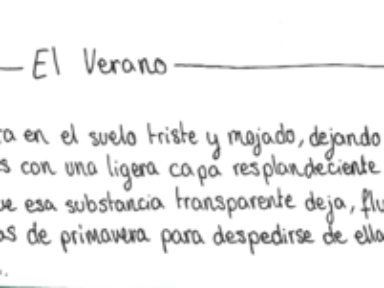 El Verano
ra en el suelo triste y mojado, dejando
s con una ligera capa resplandeciente
ue esa substancia transparente deja, flu
as de primavera para despedirse de ella
.